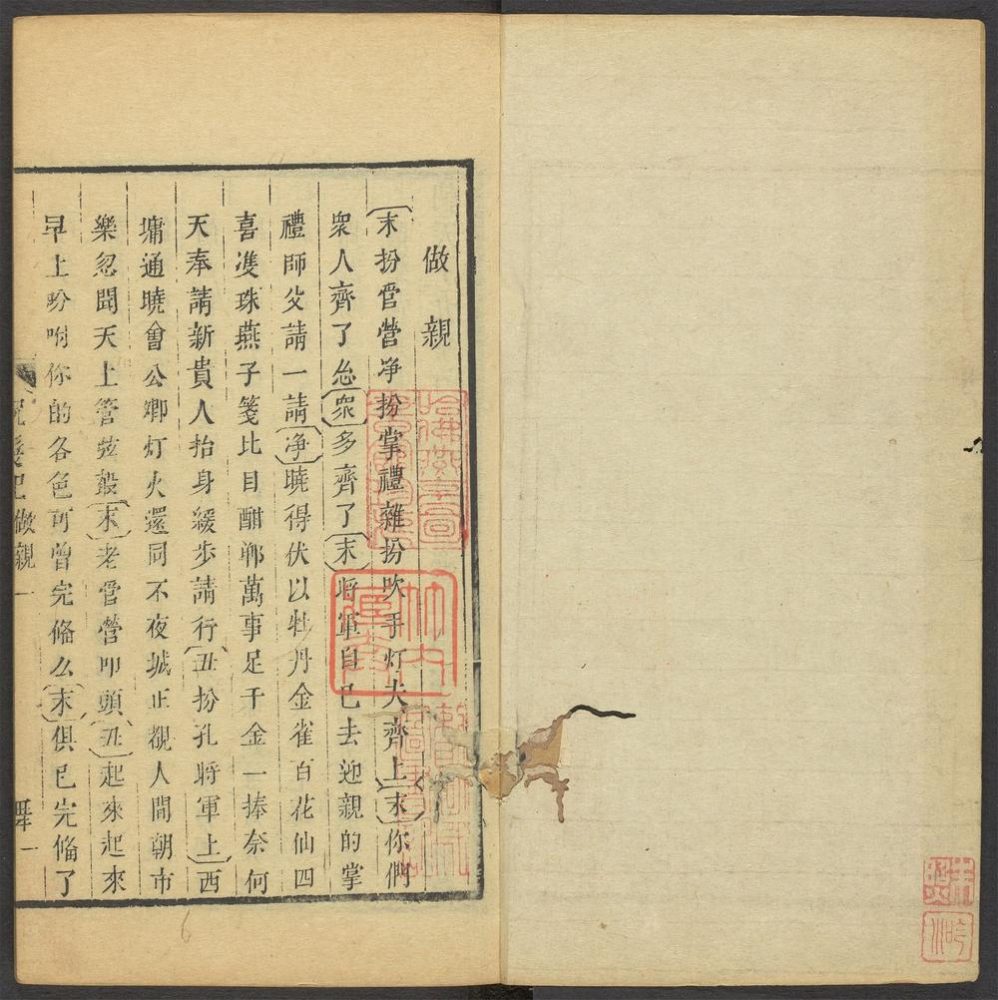 做親
末扮管營净扮掌禮雜扮吹手灯夫齊上末你們
衆人齊了么衆多齊了末將軍自己去迎親的掌
禮師父請一請净曉得伏以牡丹金雀百花仙四
喜雙珠燕子箋比目酣邯萬事足千金一捧奈何
天奉請新貴人抬身緩步請行丑扮孔將軍上西
墉通曉會公卿灯火還同不夜城正覩人間朝市
樂忽聞天上管弦聲末老管營叩頭丑起來起來
早上吩咐你的各色可曾完俻么末俱已完俻了
做親 一